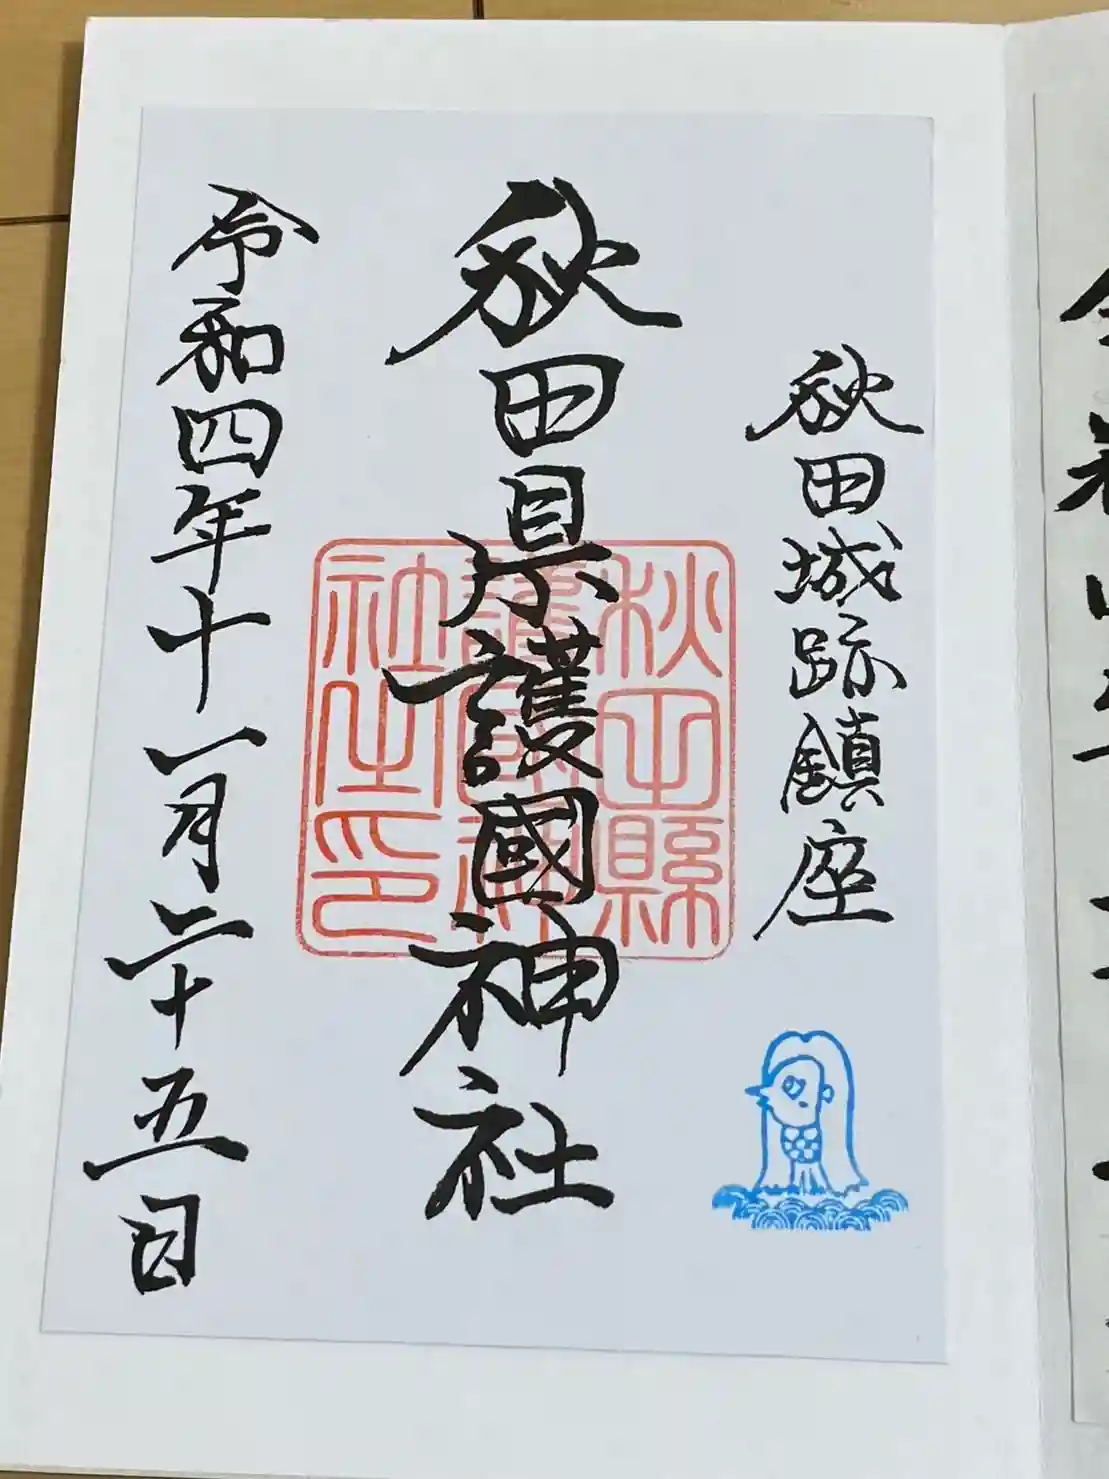 秋田城跡鎮座
秋田県護國神社
秋田縣護國神社之印
令和四年十一月二十五日